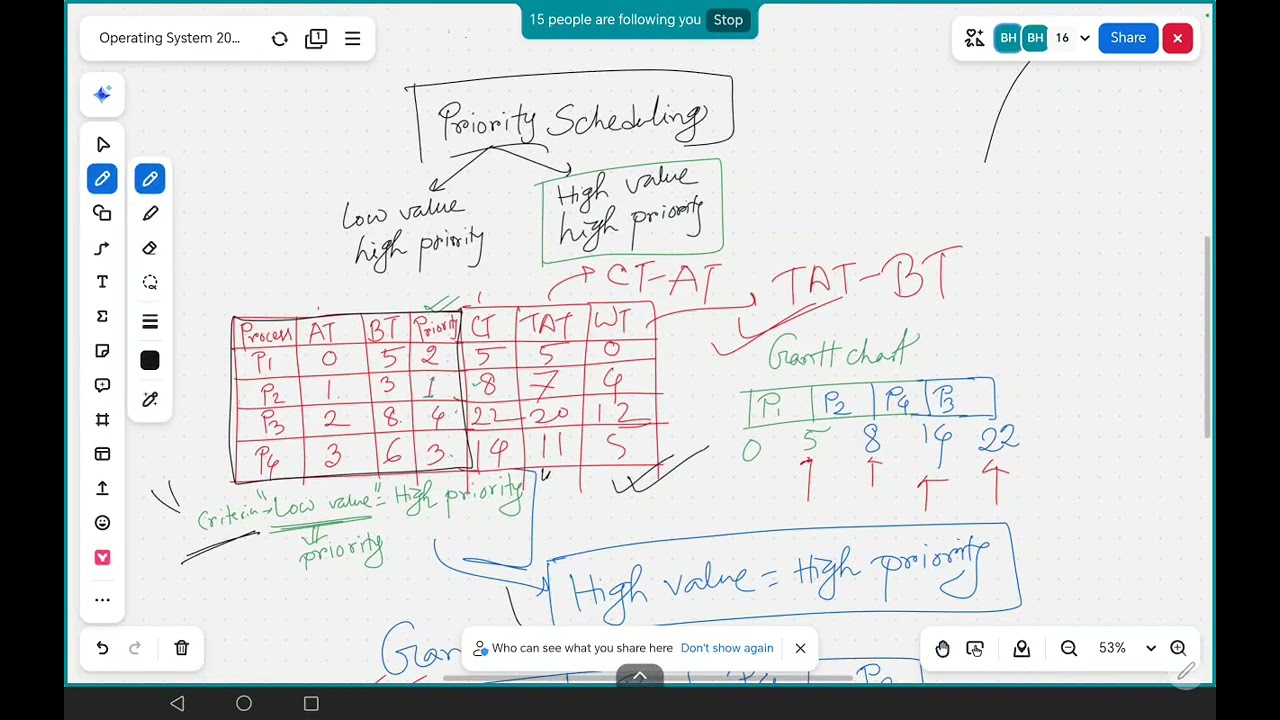 15 people are following you Stop
Operating System 20...
1
BH BH 16 Share
Priority Scheduling
Low value
high priority
High value
high priority
CT-AT
TAT-BT
Process AT BT Priority CT TAT WT
P1 0 5 2 5 5 0
P2 1 3 1 8 7 4
P3 2 8 4 22 20 12
P4 3 6 3 14 11 5
Gantt chart
P1 P2 P4 P3
0 5 8 14 22
Criteria → "Low value" = High priority
priority
High value = High priority
Who can see what you share here Don't show again
53%